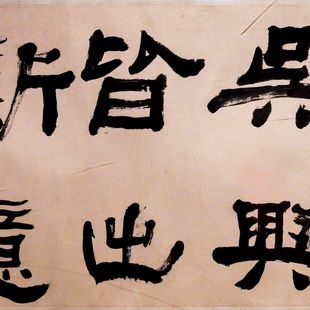 吳興
皆出
新意